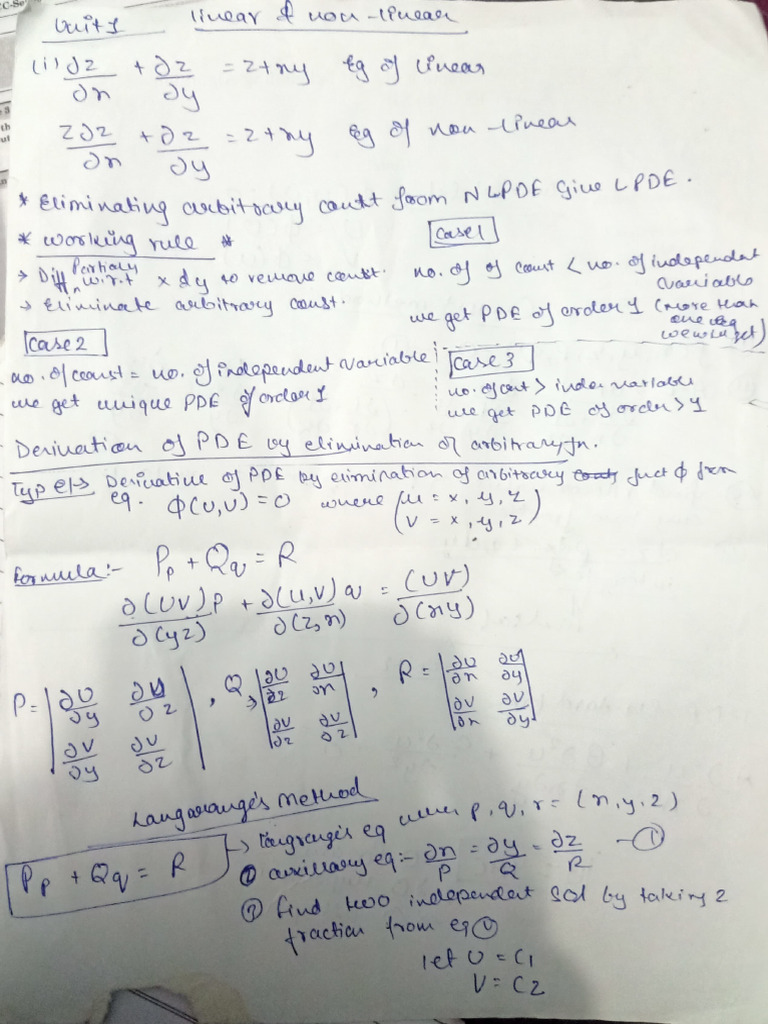 Unit 1 linear & non-linear
(i) ∂z/∂x + ∂z/∂y = z + xy Eg of linear
z∂z/∂x + ∂z/∂y = z + xy Eg of non-linear
* Eliminating arbitrary constt from NLPDE give LPDE.
* working rule *
→ Diff partially w.r.t x dy to remove const.
→ Eliminate arbitrary const.
Case 1
no. of of const < no. of independent variable
we get PDE of order 1 (more than one eq we will get)
Case 2
no. of const = no. of independent variable
we get unique PDE of order 1
Case 3
no. of cont > inder variable
we get PDE of order > 1
Derivation of PDE by elimination of arbitrary fn.
Type 1 → Derivative of PDE by elimination of arbitrary funct ϕ from
eq. ϕ(u,v) = 0 where (u = x, y, z
v = x, y, z)
Formula:- Pp + Qq = R
∂(UV)/∂(yz) p + ∂(U,V)/∂(z,x) q = (UV)/∂(xy)
P = |∂U/∂y ∂U/∂z| , Q → |∂U/∂z ∂U/∂x| , R = |∂U/∂x ∂U/∂y|
|∂V/∂y ∂V/∂z| |∂V/∂z ∂V/∂z| |∂V/∂x ∂V/∂y|
Langarange's Method
Pp + Qq = R → Langrange's eq when p, q, r = (x, y, z)
① auxillary eq:- ∂x/P = ∂y/Q = ∂z/R —①
② find two independent sol by taking 2
fraction from eq ①
let U = C1
V = C2